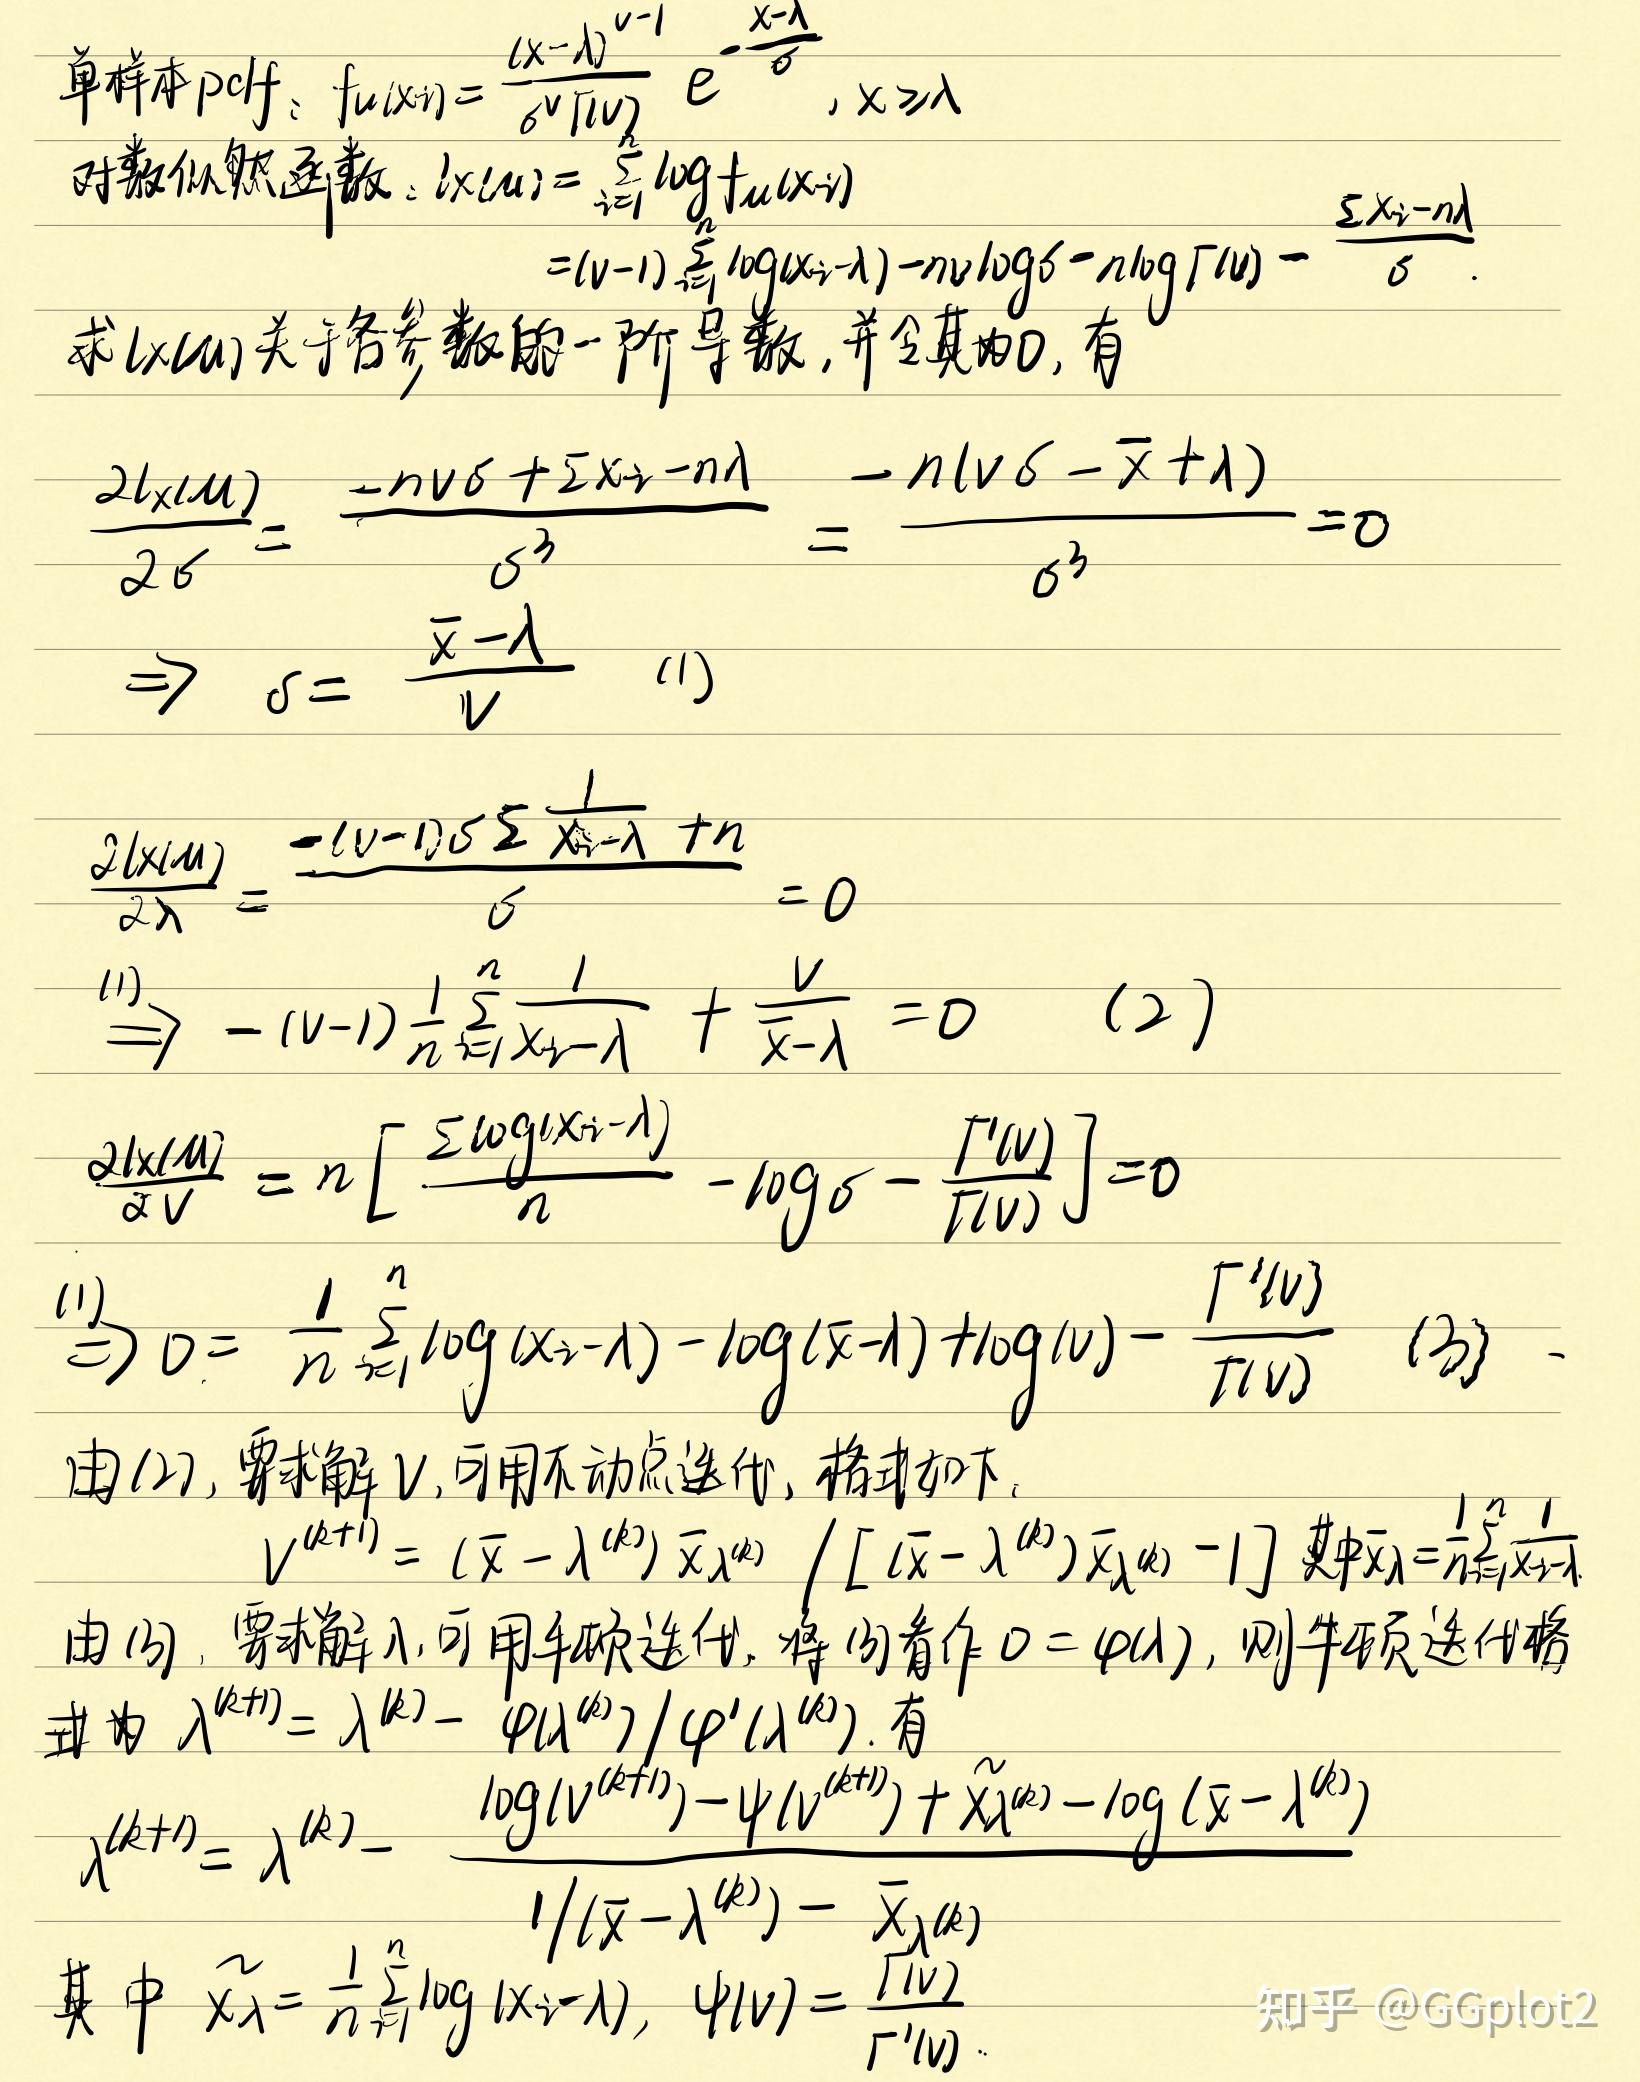 单样本pdf: fμ(xi) = (x-λ)^(ν-1) / (σ^ν Γ(ν)) e^(-(x-λ)/σ), x ≥ λ
对数似然函数: lx(μ) = Σ_{i=1}^n log fμ(xi)
= (ν-1) Σ_{i=1}^n log(xi-λ) - nν log σ - n log Γ(ν) - (Σxi - nλ)/σ .
求 lx(μ) 关于各参数的一阶导数, 并令其为0, 有
∂lx(μ)/∂σ = (-nνσ + Σxi - nλ)/σ³ = -n(νσ - x̄ + λ)/σ³ = 0
⇒ σ = (x̄-λ)/ν (1)
∂lx(μ)/∂λ = (-(ν-1)σ Σ 1/(xi-λ) + n)/σ = 0
(1)⇒ -(ν-1) 1/n Σ_{i=1}^n 1/(xi-λ) + ν/(x̄-λ) = 0 (2)
∂lx(μ)/∂ν = n[ Σlog(xi-λ)/n - log σ - Γ'(ν)/Γ(ν) ] = 0
(1)⇒ 0 = 1/n Σ_{i=1}^n log(xi-λ) - log(x̄-λ) + log(ν) - Γ'(ν)/Γ(ν) (3)
由(2), 要求解ν, 可用不动点迭代, 格式如下:
ν^(k+1) = (x̄ - λ^(k)) x̄_λ^(k) / [(x̄ - λ^(k)) x̄_λ^(k) - 1] 其中 x̄_λ = 1/n Σ_{i=1}^n 1/(xi-λ)
由(3), 要求解λ, 可用牛顿迭代, 将(3)看作 0 = φ(λ), 则牛顿迭代格
式为 λ^(k+1) = λ^(k) - φ(λ^(k))/φ'(λ^(k)). 有
λ^(k+1) = λ^(k) - (log(ν^(k+1)) - ψ(ν^(k+1)) + x̃_λ^(k) - log(x̄ - λ^(k))) / (1/(x̄ - λ^(k)) - x̄_λ^(k))
其中 x̃_λ = 1/n Σ_{i=1}^n log(xi-λ), ψ(ν) = Γ(ν)/Γ'(ν).
知乎 @GGplot2